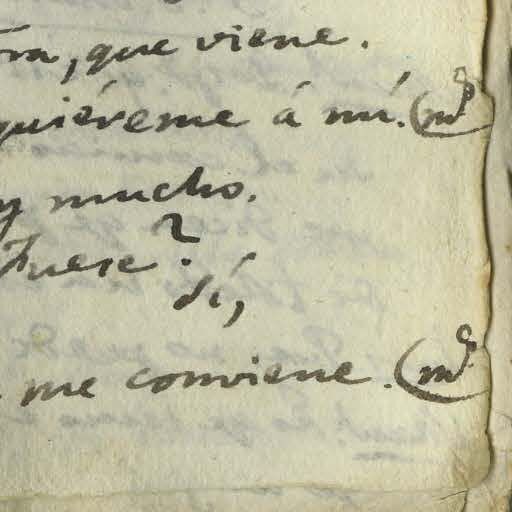 que viene.
quiéreme á mí. (mº
y mucho.
Fuese?
sí,
me conviene. (mº